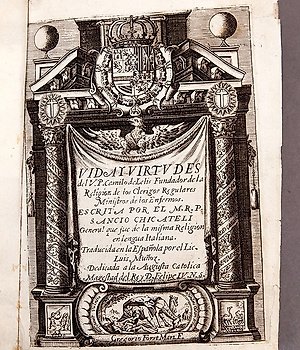 VIDA Y VIRTVDES
del V.P. Camilo de Lelis Fundador de la
Religion de los Clerigos Regulares
Ministros de los Enfermos.
ESCRITA POR EL M.R.P.
SANCIO CHICATELI
General que fue de la misma Religion
en lengua Italiana.
Traducida en la Española por el Lic.
Luis Muñoz.
Dedicada a la Augusta Catolica
Magestad del Rey D. Felipe IV. N.S.
Gregorio Fosman F.